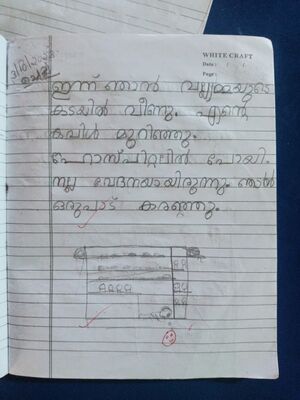 WHITE CRAFT
Date :
Page :
ഇന്ന് ഞാൻ വല്ല്യമ്മയുടെ
കടയിൽ വീണു. എന്റെ
കവിൾ മുറിഞ്ഞു.
ഹോസ്പിറ്റലിൽ പോയി.
നല്ല വേദനയായിരുന്നു. ഞാൻ
ഒരുപാട് കരഞ്ഞു.